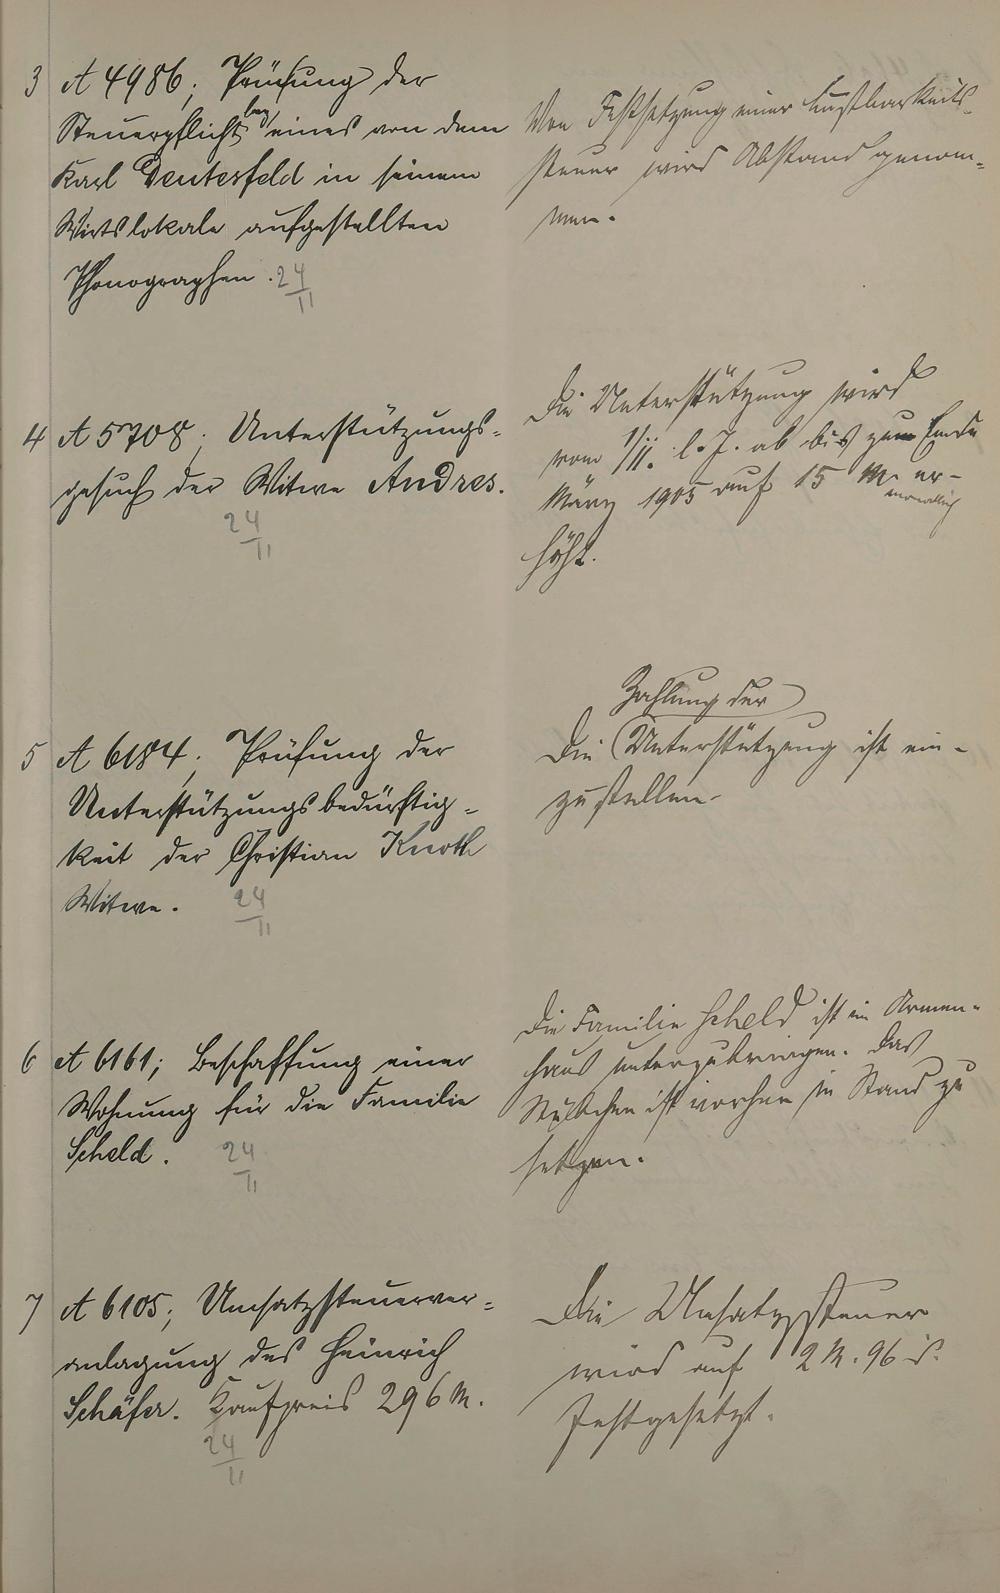 3 A 4986; Prüfung der
Steuerpflicht eines von dem
Karl Deutesfeld in seinem
Wirtslokale aufgestellten
Phonographen. 24/II
Von Festsetzung einer Lustbarkeits-
steuer wird Abstand genom-
men.
4 A 5708; Unterstützungs-
gesuch der Witwe Andres.
24/II
Die Unterstützung wird
vom 1/II. l. J. ab bis zum Ende
März 1905 auf 15 M. er-
monatlich
höht.
5 A 6184; Prüfung der
Unterstützungsbedürftig-
keit der Christian Knoth
Witwe. 24/II
Zahlung der
Die Unterstützung ist ein-
zustellen.
6 A 6161; Beschaffung einer
Wohnung für die Familie
Scheld. 24/II
Die Familie Scheld ist im Armen-
haus unterzubringen. Das
ist vorher in Stand zu
setzen.
7 A 6105; Umsatzsteuerver-
anlagung des Heinrich
Schäfer. Kaufpreis 296 M.
24/II
Die Umsatzsteuer
wird auf 2 M. 96 d.
festgesetzt.